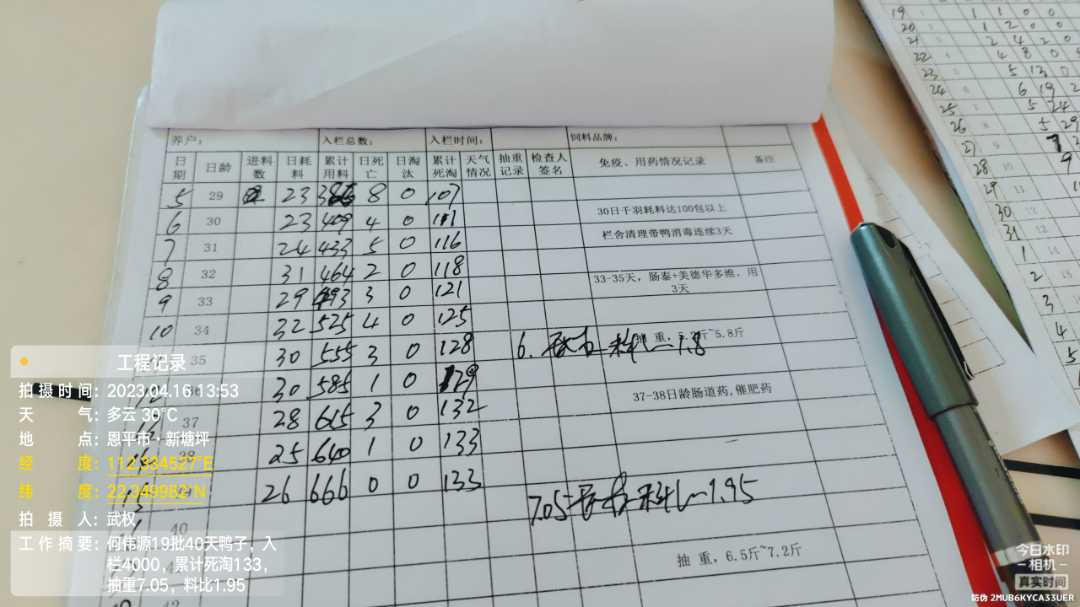 养户： 入栏总数： 入栏时间： 饲料品牌：
日期 日龄 进料数 日耗料 累计用料 日死亡 日淘汰 累计死淘 天气情况 抽重记录 检查人签名 免疫、用药情况记录 备注
5 29 23 8 0 107
6 30 23 409 4 0 111 30日千羽耗料达100包以上
7 31 24 433 5 0 116 栏舍清理带鸭消毒连续3天
8 32 31 464 2 0 118
9 33 29 493 3 0 121 33-35天，肠泰+美德华多维，用3天
10 34 32 525 4 0 125
35 30 555 3 0 128 6. 料比1.8 重，5.2斤~5.8斤
30 585 1 0 129
37 28 615 3 0 132 37-38日龄肠道药,催肥药
38 25 640 1 0 133
26 666 0 0 133
40 7.05斤 料比1.95
抽 重，6.5斤~7.2斤
42
工程记录
拍摄时间：2023.04.16 13:53
天 气：多云 30℃
地 点：恩平市·新塘坪
经 度：112.334527°E
纬 度：22.349982°N
拍 摄 人：武权
工作摘要：何伟源19批40天鸭子，入
栏4000，累计死淘133，
抽重7.05，料比1.95
19 1 1 0 0
20 1 2 0 0
21 2 4 2 0
22 4 8 0
23 5 13 0
24 6 19
25 5 24
26 5 29
28 9
29
30
31
1
2
3
4
5
今日水印
-相机-
真实时间
防伪 2MUB6KYCA33UER